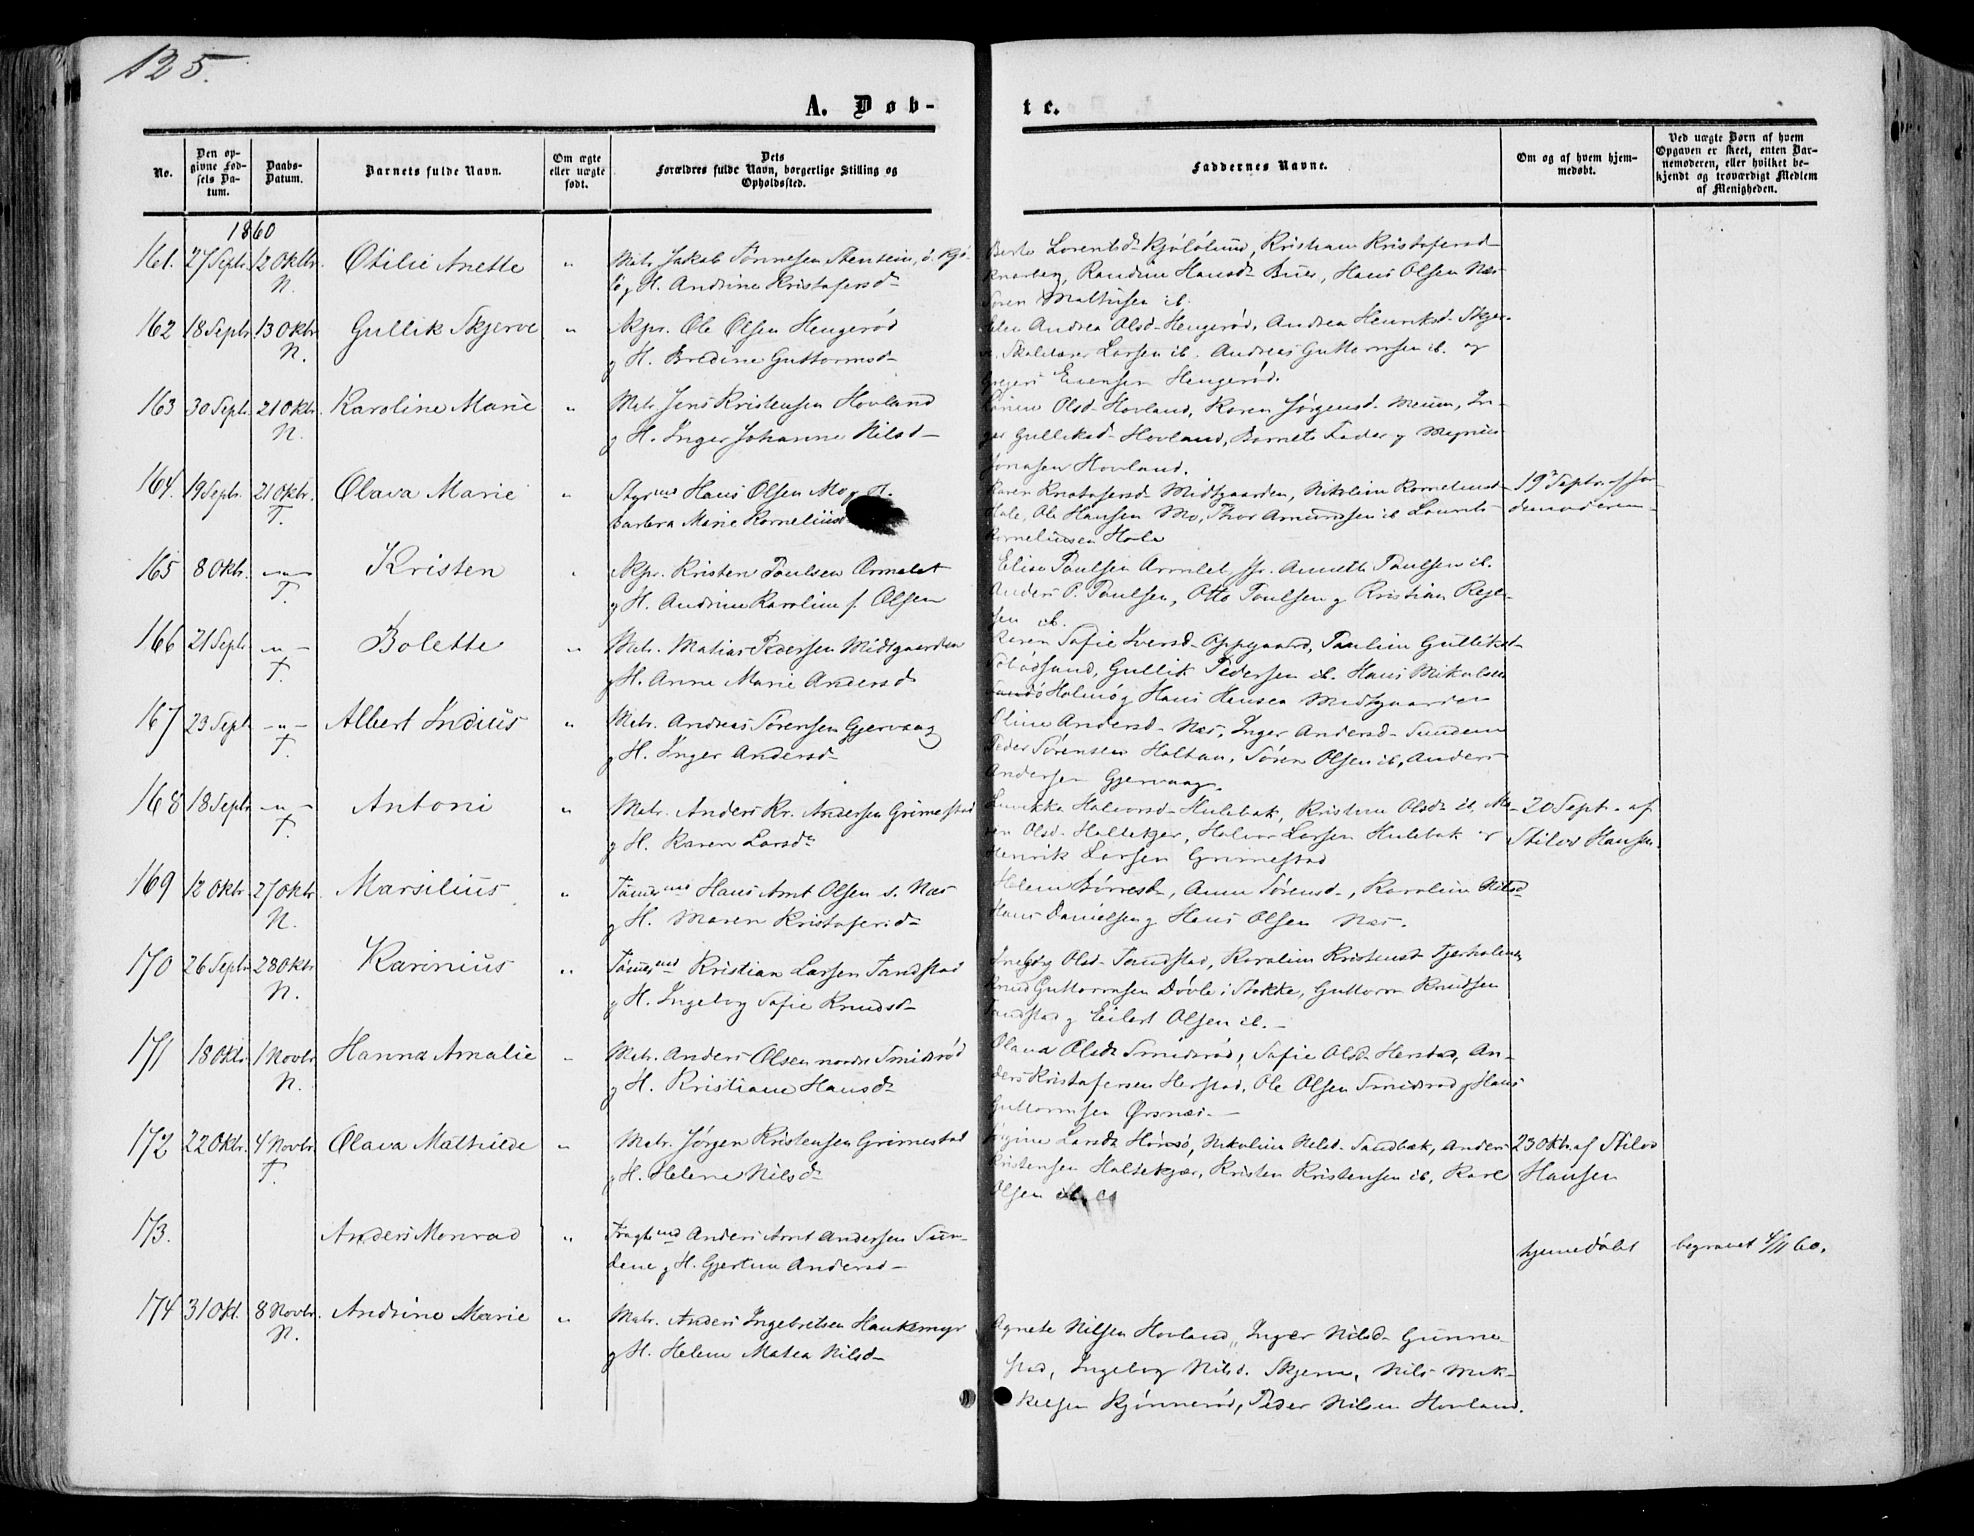 125.
A. Døb-
te.
No.
Den op-
givne Fød-
sels Da-
tum.
Daabs-
Datum.
Barnets fulde Navn.
Om ægte
eller uægte
født.
Dets
Forældres fulde Navn, borgerlige Stilling og
Opholdssted.
Faddernes Navne.
Om og af hvem hjem-
medøbt.
Ved uægte Børn af hvem
Opgaven er skeet, enten Bar-
nemoderen, eller hvilket be-
kjendt og troværdigt Medlem
af Menigheden.
1860
161. 27 Septr. 12 Oktbr. Otilie Anette " Matr. Jakob Tønnesen
N. og H. Andrine Kristofersd-
Lorentsd- Kristiane Kristofersd-
Randine Hansd- Buer, Hans Olsen Næs
Søren Mathisen ib.
162 18 Septr. 13 Oktr. Gullik Skjerve " Ole Olsen Hengerød
N. g H. Bredine Guttormsd-
Andrea Olsd- Hengerød, Andrea Henriksd- Skjer-
Larsen ib. Andreas Guttormsen ib. og
Evensen Hengerød.
163 30 Septr. 21 Oktr. Karoline Marie " Matr. Jens Kristensen Hovland
N. g H. Inger Johanne Nilsd-
Olsd- Hovland, Karen Jørgensd- In-
ger Gulliksd- Hovland, Barnets Fader g Magnus
Jonasen Hovland.
164. 19 Septr. 21 Oktr. Olava Marie " Styrmd Hans Olsen Mo g H.
T. Barbra Marie Korneliusd
Karen Kristofersd- Midtgaarden, Nikoline Korneliusd-
Hole, Ole Hansen Mo, Thor Amundsen ib Laurits
Korneliusen Hole
19 Septr. af Jor-
demoderen-
165 8 Oktr. -"- Kristen " Kristen Paulsen Ormelet
T. g H. Andrine Karoline f. Olsen
Elise Paulsen Ormelet, Anette Paulsen ib.
Anders P. Paulsen, Otto Paulsen g Kristian
sen ib.
166 21 Septr. -"- Bolette " Matr. Matias Pedersen Midtgaarden
T. g H. Anne Marie Andersd
Karen Sofie Iversd- Oppgaard, Pauline Gulliksd-
Gullik Pedersen ib. Hans Mikalsen
Holmø g Hans Hansen Midtgaarden
167 23 Septr -"- Albert Indius " Matr. Andreas Sørensen Gjervaag
T. g H. Inger Andersd-
Oline Andersd- Næs, Inger Andersd- Sundene
Peder Sørensen Holtan, Søren Olsen ib, Anders
Andersen Gjervaag.
168 18 Septr. -"- Antoni " Matr. Anders Kr. Andersen Grimestad
T. g H. Karen Larsd-
Halvorsd- Hulebak, Kristine Olsd- ib, Ma-
ren Olsd- Holtekjær, Halvor Larsen Hulebak g
Henrik Larsen Grimestad
20 Sept. af
Stilov Hansen.
169 12 Oktr. 27 Oktr. Marsilius " Tømmermd Hans Arnt Olsen s. Næs
N. g H. Maren Kristofersd-
Helene Børresd-, Anne Sørensd-, Karoline Nilsd
Hans Danielsen g Hans Olsen Næs.
170 26 Septr. 28 Oktr. Karinius " Tømmermd Kristian Larsen Tandstad
N. g H. Ingeborg Sofie Knudsd-
Ingeborg Olsd- Tandstad, Karoline Kristensd- Tjerholmen
Knud Guttormsen Døvle i Stokke, Guttorm Knudsen
Tandstad g Eilert Olsen ib.-
171 18 Oktr. 1 Novbr. Hanna Amalie " Matr. Anders Olsen nordre Smidsrød
N. g H. Kristiane Hansd-
Olava Olsd- Smidsrød, Sofie Olsd- Herstad, An-
ders Kristofersen Herstad, Ole Olsen Smidsrød g Hans
Guttormsen Ørsnæs.-
172 22 Oktr. 4 Novbr. Olava Mathilde " Matr. Jørgen Kristensen Grimestad
T. g H. Helene Nilsd-
Jørgine Larsd- Nikoline Nilsd- Sandbæk, Anders
Kristensen Holtekjær, Kristen Kristensen ib, Karl
Olsen ib.
23 Oktr. af Stilov
Hansen
173. Anders Monrad " Fragtmd Anders Arnt Andersen Sun-
dene g H. Gjertine Andersd-
hjemmedøbt
begravet 4/11 60.
174 31 Okt. 8 Novbr. Andrine Marie " Matr. Anders Ingebretsen Haukemyr
N. g H. Helene Matea Nilsd-
Agnete Nilsen Hovland, Inger Nilsd- Gunne-
stad, Ingeborg Nilsd. Skjerve, Nils Mik-
kelsen Kjønnerød, Peder Nilsen Hovland.